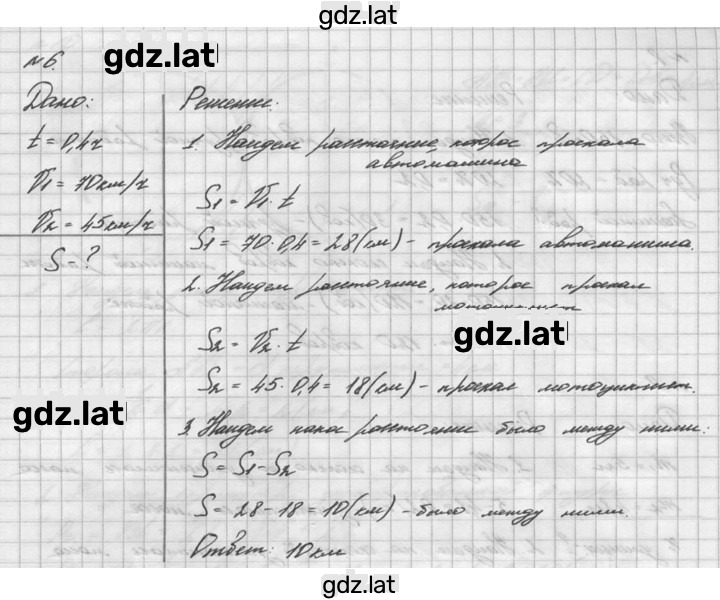 gdz.latl
№6.
gdz.latl
Дано:
t = 0,4ч
V₁ = 70км/ч
V₂ = 45км/ч
S - ?
Решение:
1. Найдем расстояние, которое проехала
автомашина
S₁ = V₁ · t
S₁ = 70 · 0,4 = 28(км) - проехала автомашина.
2. Найдем расстояние, которое проехал
мотоциклист
gdz.latl
S₂ = V₂ · t
S₂ = 45 · 0,4 = 18(км) - проехал мотоциклист.
gdz.latl
3. Найдем какое расстояние было между ними:
S = S₁ - S₂
S = 28 - 18 = 10(км) - было между ними.
Ответ: 10км
gdz.lat